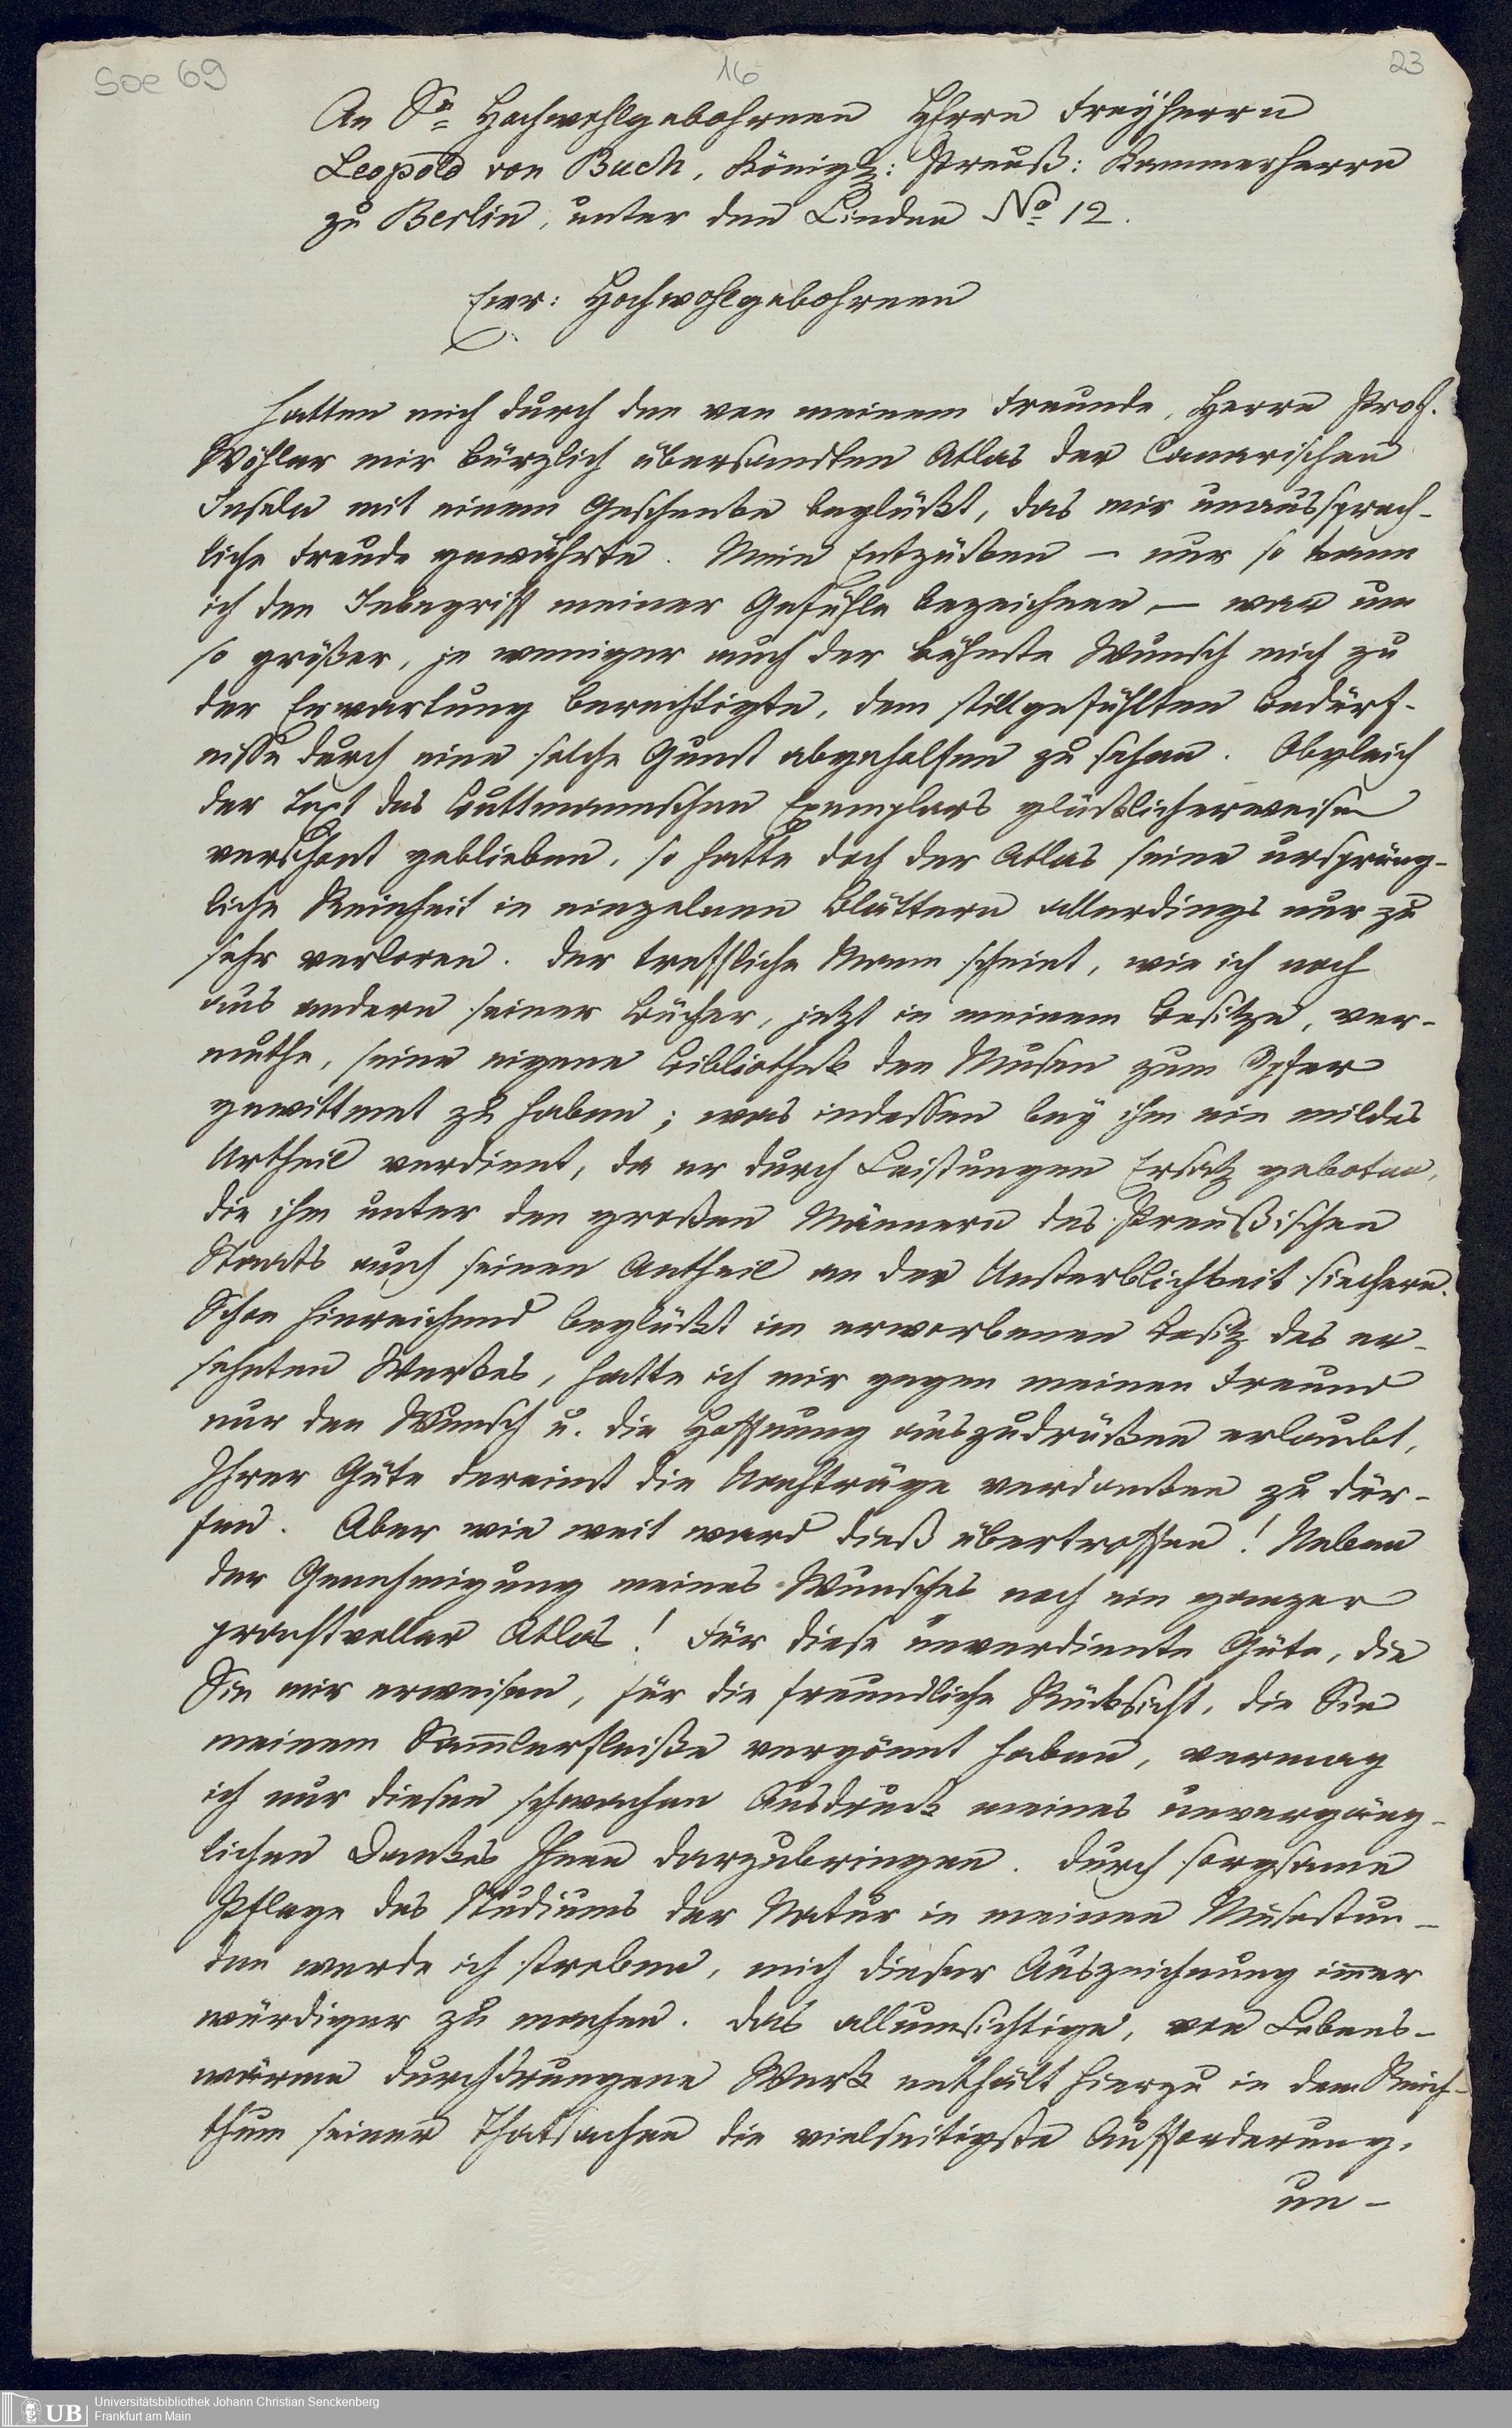 Soe 69
16
23
An Sr Hochwohlgebohrnen Hherrn Freyherrn
Leopold von Buch, Königl: Preuß: Kammerherrn
zu Berlin, unter den Linden No 12.
Euer: Hochwohlgebohrnen
hatten mich durch den von meinem Freunde, Herrn Prof.
Wöhler mir kürzlich übersandten Atlas der Canarischen
Inseln mit einem Geschenke beglückt, das mir unaussprech-
liche Freude gewährte. Mein Entzücken – nur so kann
ich den Inbegriff meiner Gefühle bezeichnen – war um
so größer, je weniger auch der kühnste Wunsch mich zu
der Erwartung berechtigte, dem stillgefühlten Bedürf-
nisse durch eine solche Gunst abgeholfen zu sehen. Obgleich
der Text des Guttmannschen Exemplars glücklicherweise
verschont geblieben, so hatte doch der Atlas seine ursprüng-
liche Reinheit in einzelnen Blättern allerdings nur zu
sehr verloren. Der treffliche Mann scheint, wie ich noch
aus andern seiner Bücher, jetzt in meinem Besitze, ver-
muthe, seine eigene Bibliothek den Musen zum Opfer
gewittmet zu haben; was indessen bey ihm ein mildes
Urtheil verdient, da er durch Leistungen Ersatz geboten,
die ihm unter den großen Männern des Preußischen
Staats auch seinen Antheil an der Unsterblichkeit siechern.
Schon hinreichend beglückt im erworbenen Besitz des er-
sehnten Werkes, hatte ich mir gegen meinen Freund
nur den Wunsch u. die Hoffnung auszudrücken erlaubt,
Ihrer Güte dereinst die Nachträge verdanken zu dür-
fen. Aber wie weit ward dieß übertroffen! Neben
der Genehmigung meines Wunsches noch ein ganzer
prachtvoller Atlas! Für diese unverdiente Güte, die
Sie mir erweisen, für die freundliche Rücksicht, die Sie
meinem Sam̅lerfleiße vergönnt haben, vermag
ich nur diesen schwachen Ausdruck meines unvergäng-
lichen Dankes Ihnen darzubringen. Durch sorgsame
Pflege des Studiums der Natur in meinen Musestun-
den werde ich streben, mich dieser Auszeichnung im̅er
würdiger zu machen. Das allumsichtige, von Lebens-
wärme durchdrungene Werk enthält hierzu in dem Reich-
thum seiner Thatsachen die vielseitigste Aufforderung,
un-
UB
Universitätsbibliothek Johann Christian Senckenberg
Frankfurt am Main